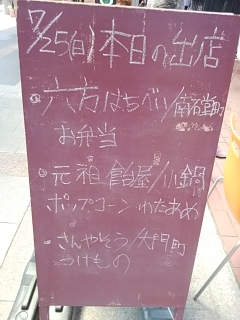 7/25(日)本日の出店
・六方はちべい/南名堂町
お弁当
・元祖飴屋/小鍋
ポップコーン わたあめ
・さんやそう/大門町
つけもの